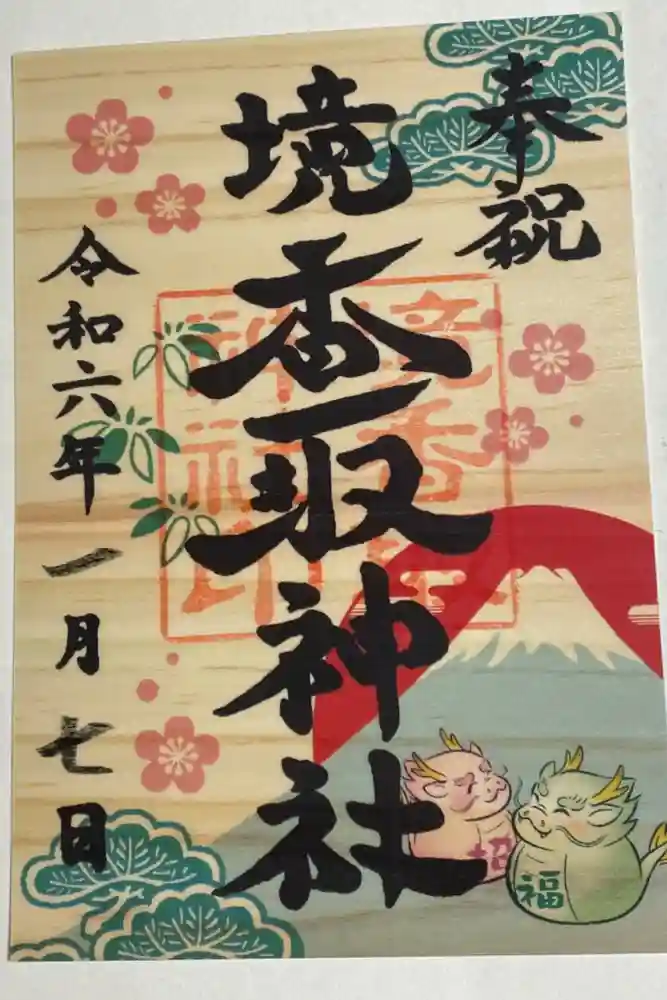 奉祝
境香取神社
境香取
神社印
令和六年一月七日
招
福